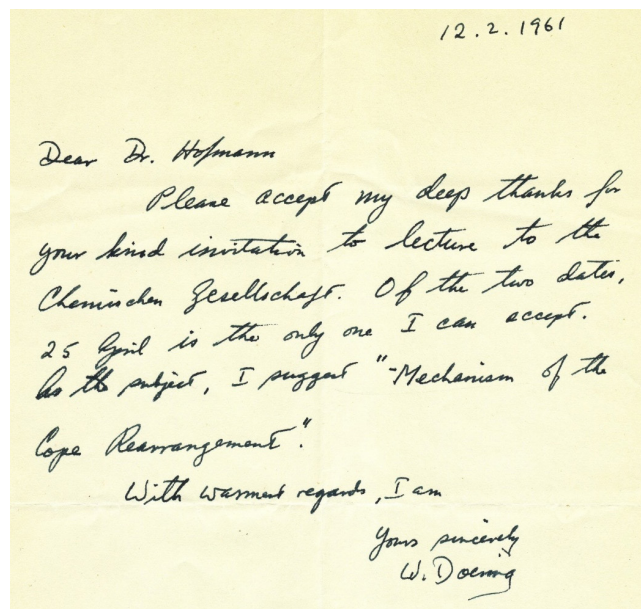 12.2.1961
Dear Dr. Hofmann
Please accept my deep thanks for
your kind invitation to lecture to the
Chemischen Gesellschaft. Of the two dates,
25 April is the only one I can accept.
As the subject, I suggest "Mechanism of the
Cope Rearrangement".
With warmest regards, I am
Yours sincerely
W. Doering